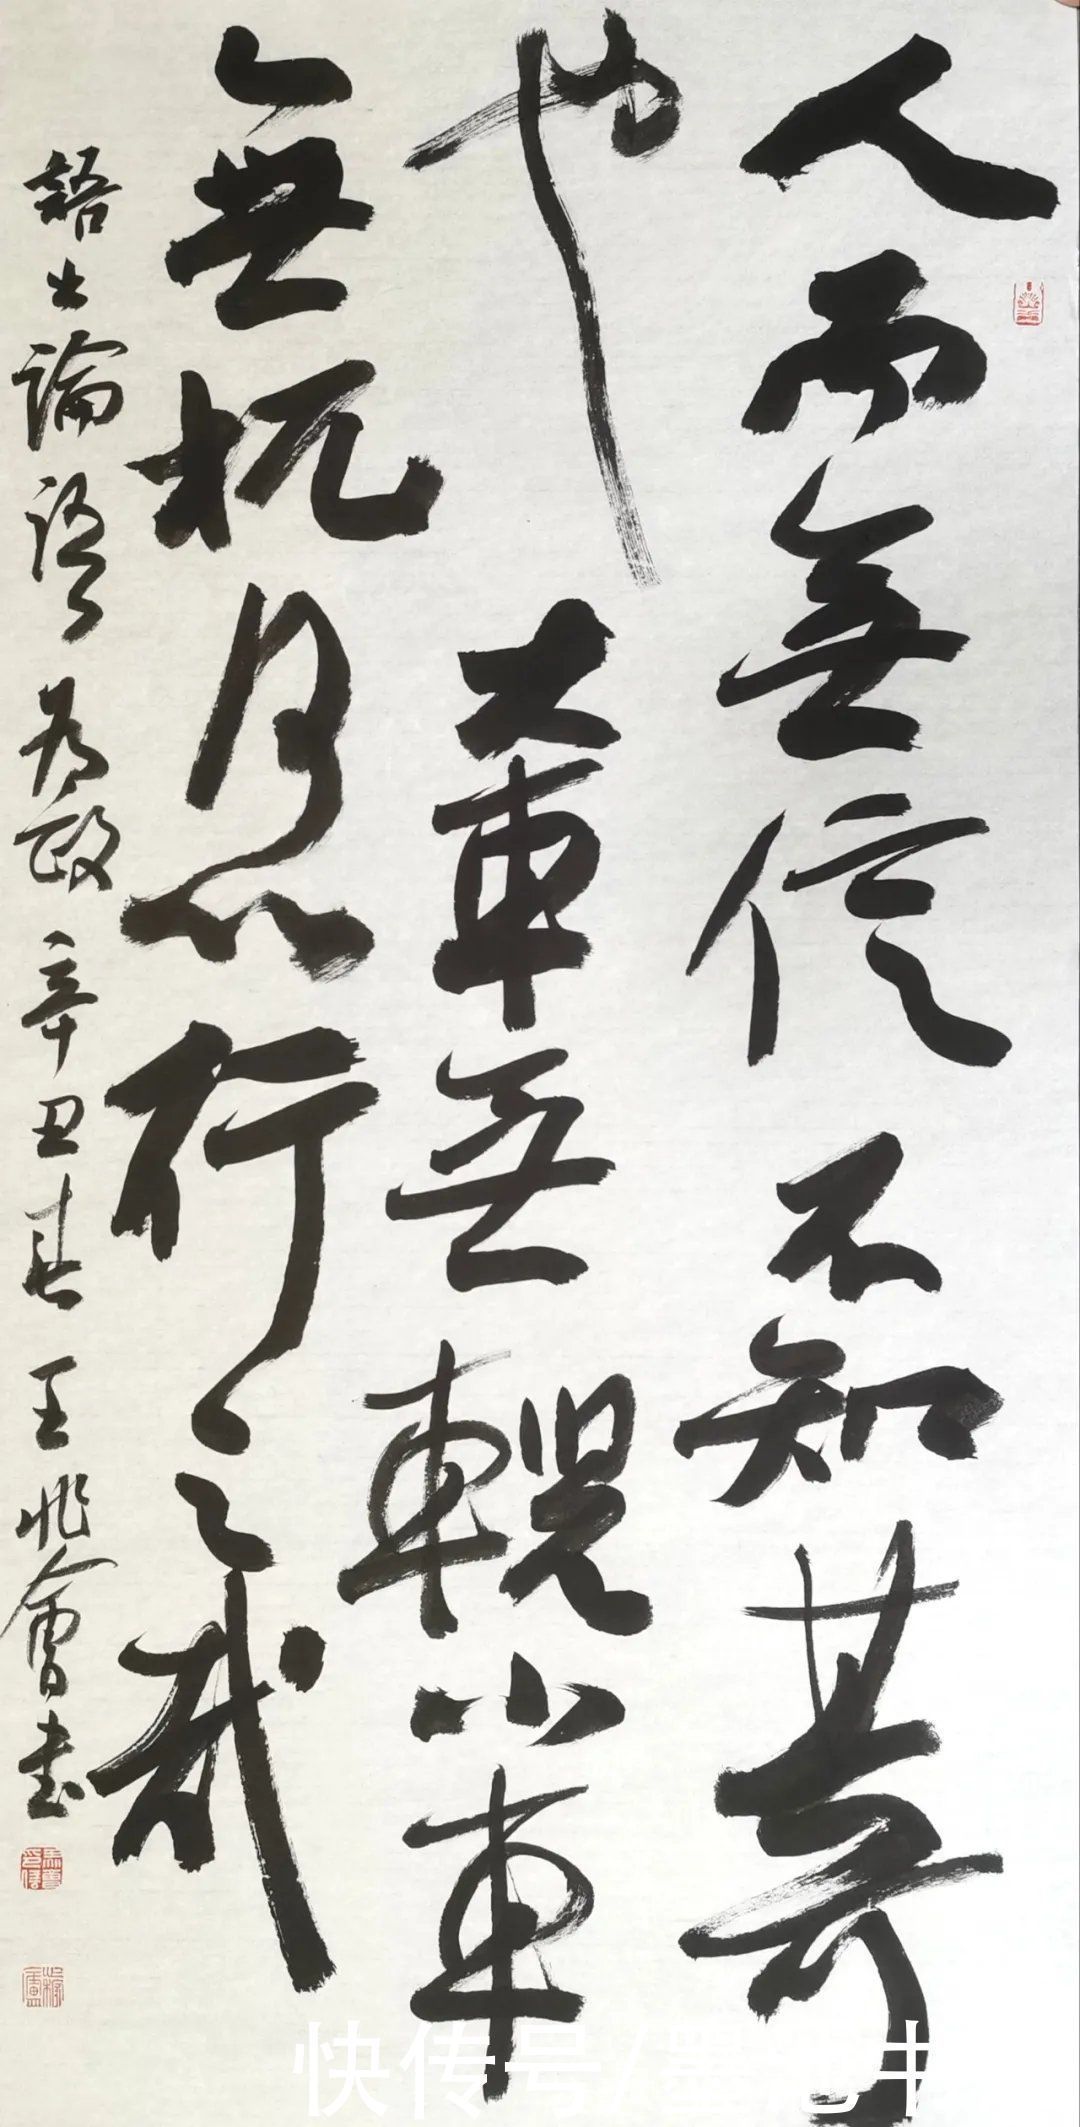 人而無信不知其可
也大車無輗小車
無杌何以行之哉
語出論語為政辛丑春王兆會書
快传号/墨池书